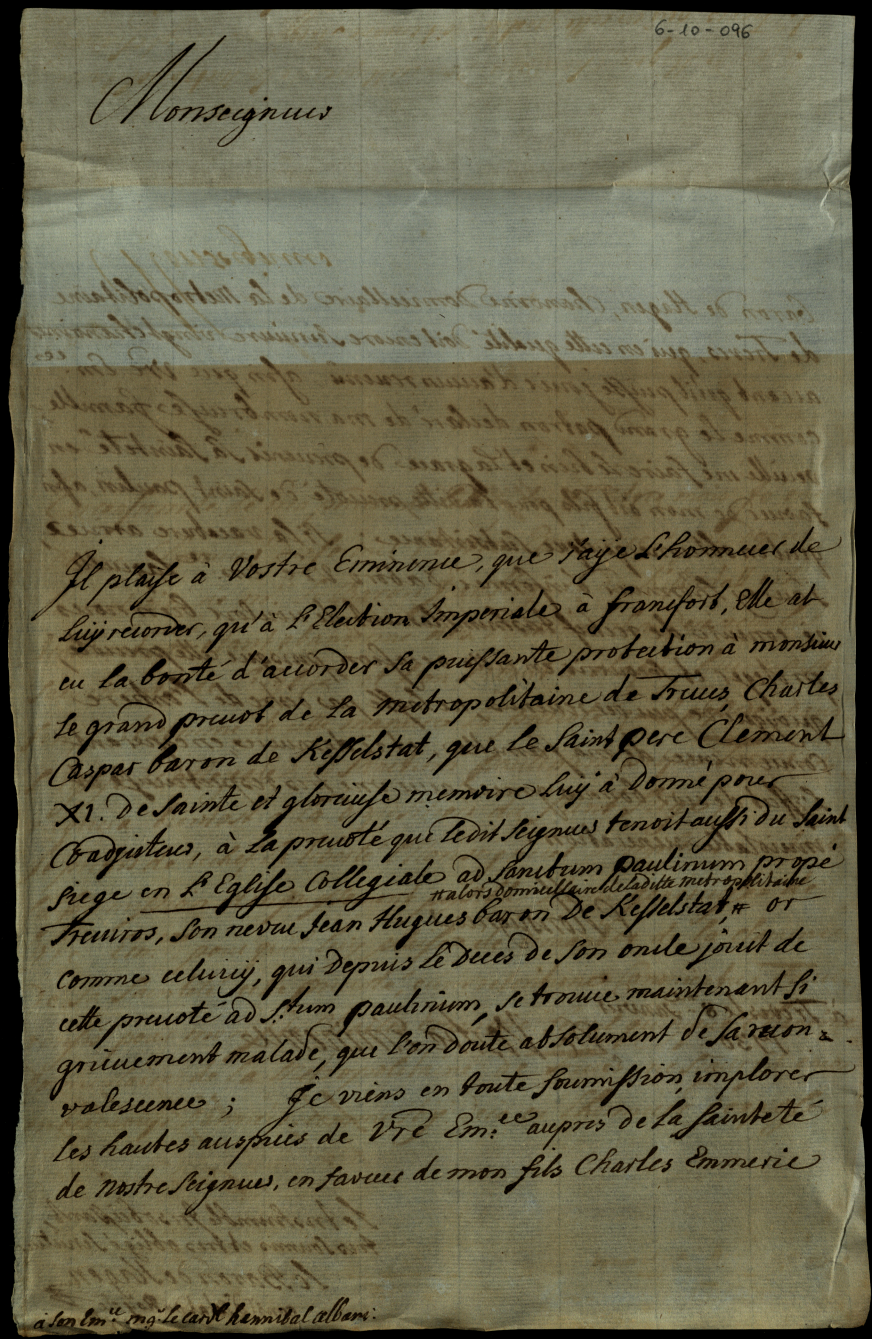 6-10-096
Monseigneur
Il plaise à Vostre Eminence, que j'aÿe L'honneur de
luÿ recorder, qu'à L'Election Imperiale à francfort, Elle at
eu la bonté d'accorder sa puissante protection à monsieur
le grand prevot de la metropolitaine de Treves, Charles
Caspar baron de Kesselstat, que le Saint pere Clement
XI. de sainte et glorieuse memoire luÿ à donné pour
Coadjuteur, à la prevoté que ledit seigneur tenoit aussi du Saint
siege en L'Eglise Collegiale ad Sanctum paulinum propé
# alors domicellaire de laditte metropolitaine
Treviros, son neveu Jean Hugues baron De Kesselstat, # or
comme celuicÿ, qui depuis le Deces de son oncle joüit de
cette prevoté ad S.tum paulinum, se trouve maintenant si
griévement malade, que l'on doute absolument de sa recon=
valescence; Je viens en toute soumission implorer
les hautes auspices de Vre Em.ce aupres de la sainteté
de nostre seigneur, en faveur de mon fils Charles Emmeric
à son Em.ce mgr. le cardl hannibal albani.